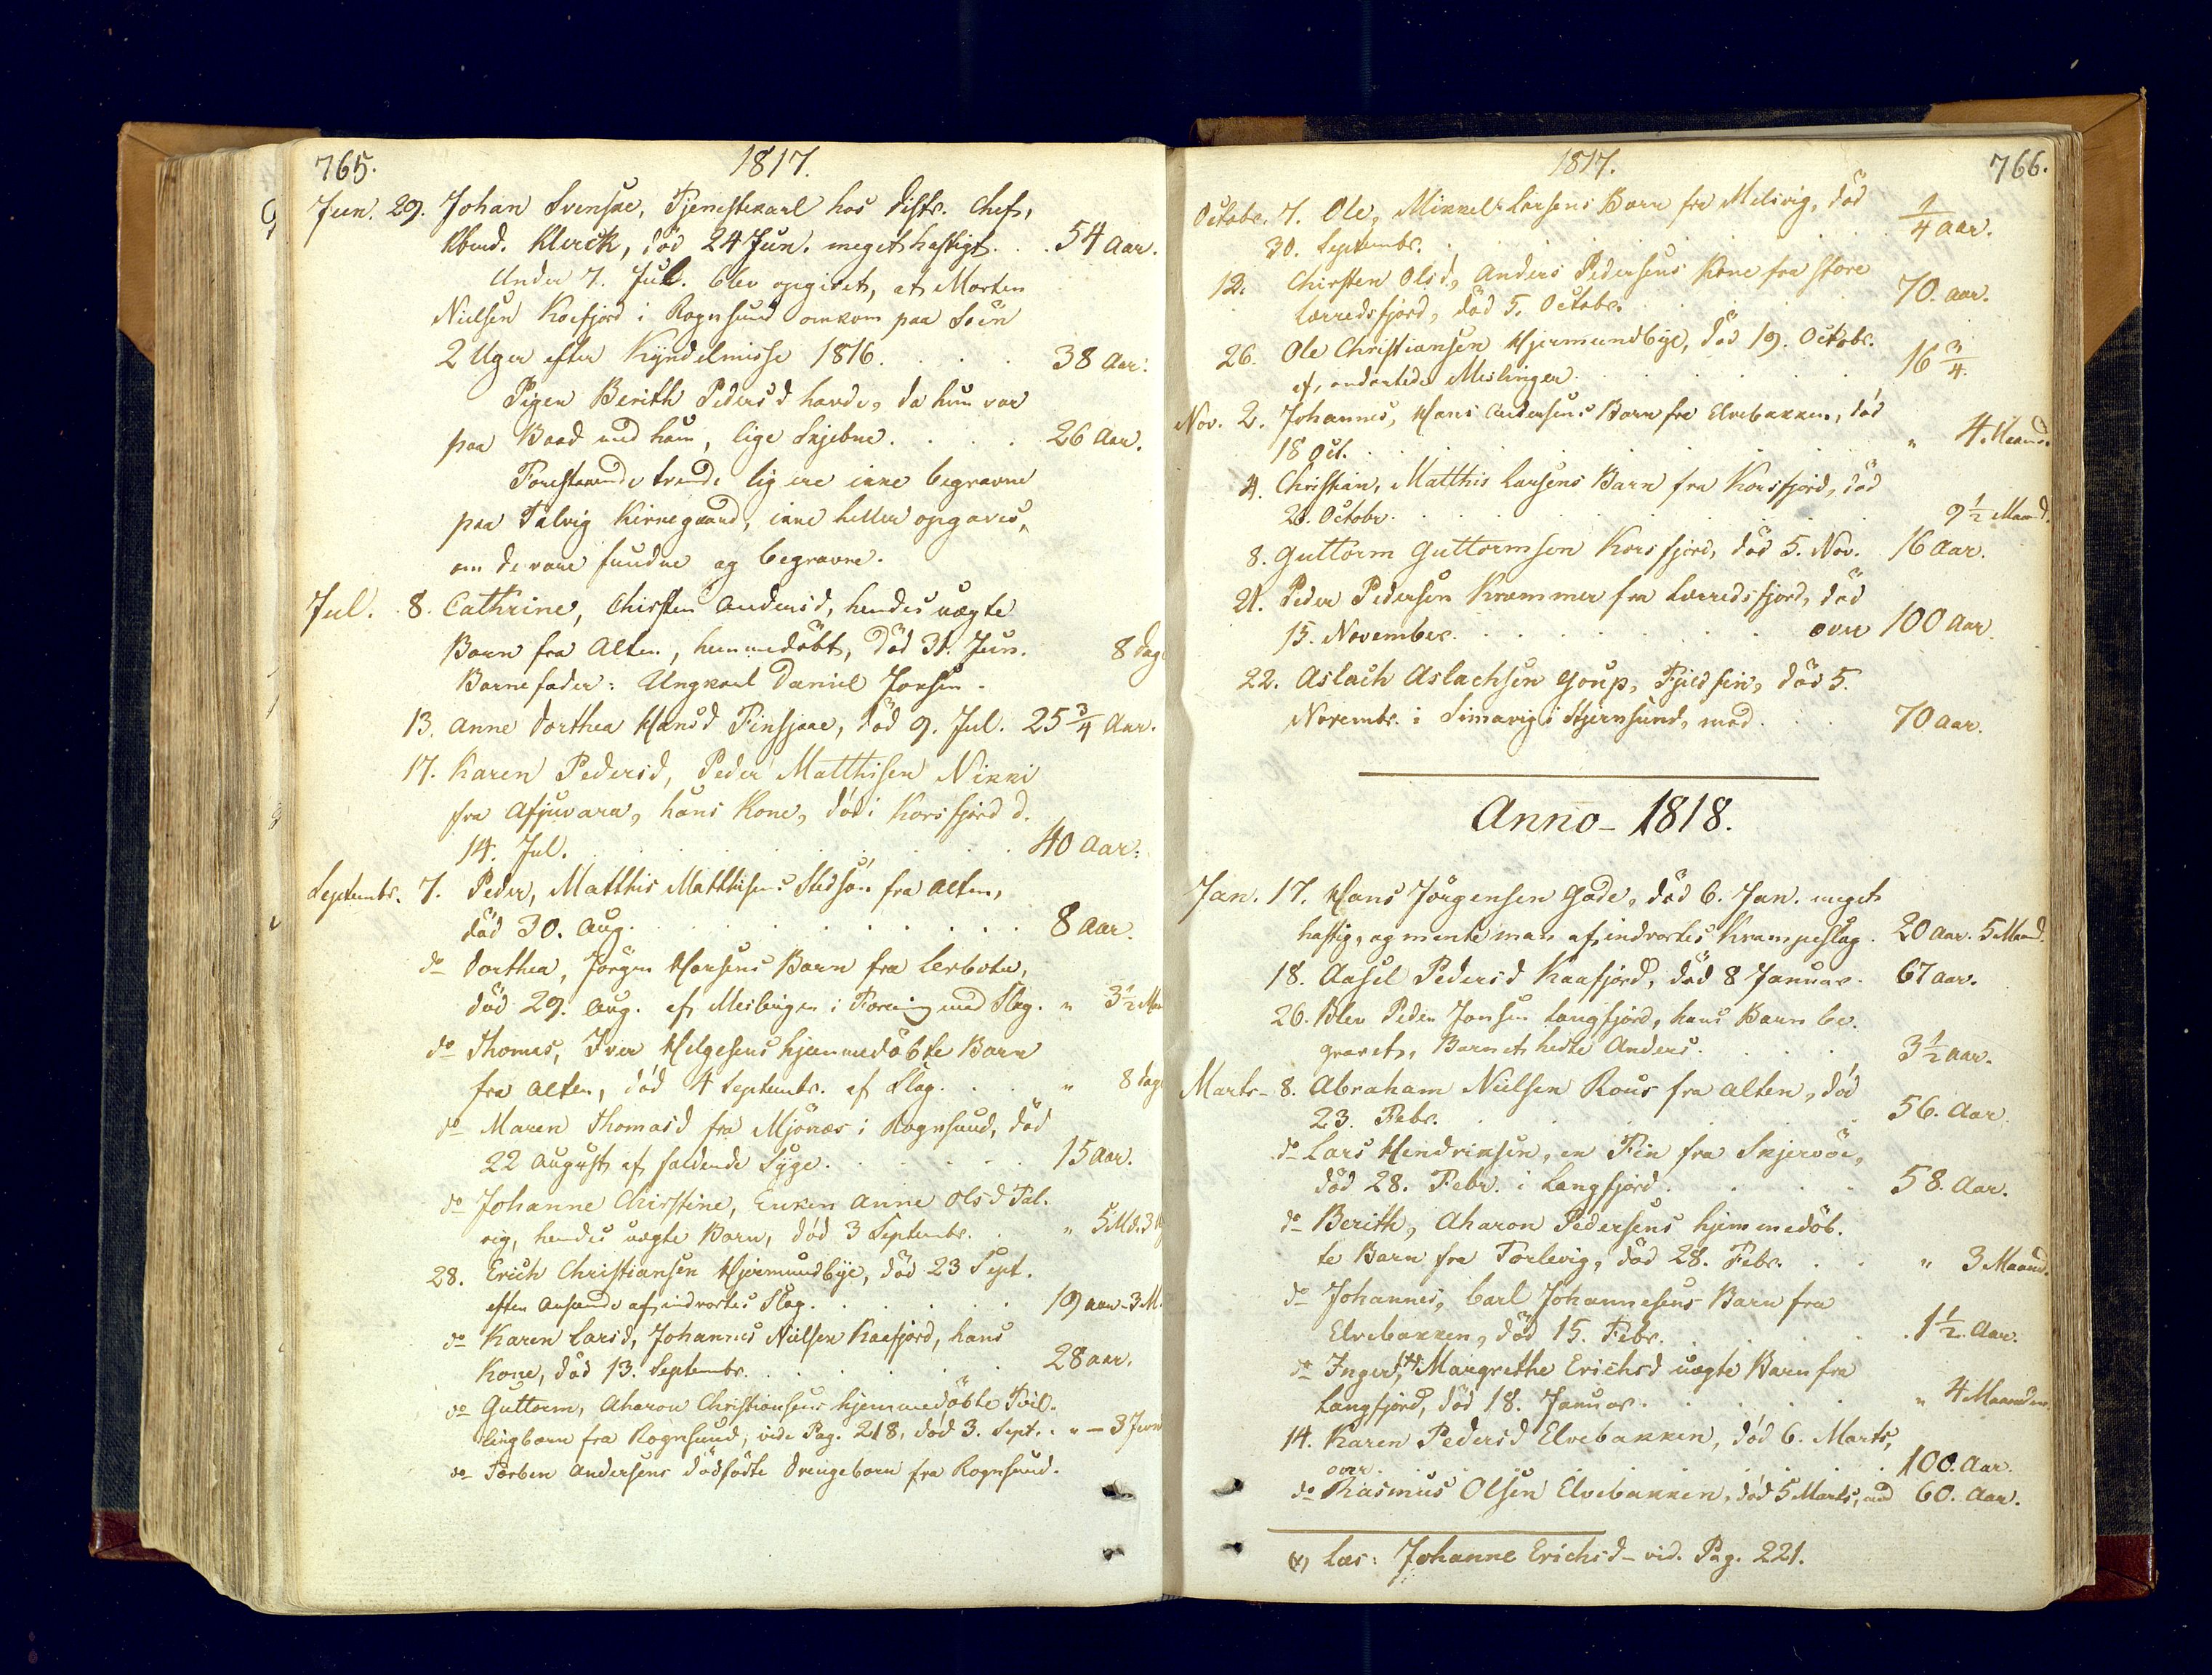 765. 1817.
Jun. 29. Johan Svenske, Tjenestekarl hos Distr. Chef,
Kbmd. Klerck, död 24 Jun. meget hastigt . . 54 Aar.
Under 7. Jul. blev opgivet, at Morten
Nielsen Koefjord i Rognsund omkom paa Söen
2 Uger efter Kyndelmisse 1816. . . . . 38 Aar.
Pigen Berith Pedersd havde, da hun var
paa Baad med ham, lige Skjebne. . . . . 26 Aar.
Forestaaende trende Lig ere ikke begravne
paa Talvig Kirkegaard, ikke heller opgaves,
om de vare fundne og begravne.
Jul. 8. Cathrine, Chirsten Andersd, hendes uægte
Barn fra Alten, hjemmedöbt, död 31. Jun. 8 Dage
Barnefader: Ungkarl Daniel Jonsen.
13. Anne Dorthea Hansd Finsjaae, död 9. Jul. 25 3/4 Aar.
17. Karen Pedersd, Peder Matthisen Nikki
fra Afjuvara, hans Kone, död i Korsfjord d.
14. Jul. . . . . . . . . . 40 Aar.
Septembr. 7. Peder, Matthis Matthisens Stedsön fra Alten,
död 30. Aug. . . . . . . . . . 8 Aar.
do Dorthea, Jörgen Hansens Barn fra Lerbotn,
död 29. Aug. af Meslinger i Forening med Slag. " 3 1/2 Maa
do Thomas, Iver Helgesens hjemmedöbte Barn
fra Alten, död 4 Septembr. af Slag. . . . " 8 Dage
do Maren Thomasd fra Mjönæs i Rognsund, död
22 August af faldende Syge. . . . . . . 15 Aar.
do Johanne Christine, Enken Anne Olsd Tal-
vig, hendes uægte Barn, död 3 Septembr. . " 5 Md. 3
28. Erich Christiansen Hjermundbye, död 23 Sept.
efter Anseende af indvortes Slag. . . . . . 19 Aar - 3 M.
do Karen Larsd, Johannes Nielsen Kaafjord, hans
Kone, död 13. Septembr. . . . . . . 28 Aar.
do Guttorm, Aharon Christiansens hjemmedöbte Tvil-
lingbarn fra Rognsund, vide Pag. 218, död 3. Sept. . " -
do Torben Andersens dödfödte Drengebarn fra Rognsund.
1817. 766.
Octobr. 7. Ole, Mikkel Larsens Barn fra Melsvig, död
30. Septembr. . . . . . . . . 1/4 Aar.
12. Chirsten Olsd, Anders Pedersens Kone fra Store
Lerredsfjord, död 5. Octobr. . . . . . 70. Aar.
26. Ole Christiansen Hjermundbye, död 19. Octobr.
af Meslinger. . . . . . . 16 3/4
Nov. 2. Johannes, Hans Andersens Barn fra Elvebakken, död
18 Oct. . . . . . . . . . " 4 Maand.
4. Christian, Matthis Larsens Barn fra Korsfjord, död
28. Octobr. . . . . . . . . . 9 1/2 Maand.
8. Guttorm Guttormsen Korsfjord, död 5. Nov. 16 Aar.
21. Peder Pedersen Krammer fra Lerredsfjord, död
15. November. . . . . . . . over 100 Aar.
22. Aslach Aslachsen Goup, Fjeldfin, död 5.
Novembr. i Simavig i Stjernsund, med . . . 70 Aar.
Anno - 1818.
Jan. 17. Hans Jörgensen Gade, död 6. Jan. meget
hastig, og mente man af indvortes Krampeslag. 20 Aar. 5 Maand.
18. Aasel Pedersd Kaafjord, död 8 Januar. 67 Aar.
26. Blev Peder Jonsen Langfjord, hans Barn be-
gravet, Barnet hedte Anders. . . . . . 3 1/2 Aar.
Marts - 8. Abraham Nielsen Rous fra Alten, död
23. Febr. . . . . . . . . 56. Aar.
do Lars Hendriksen, en Fin fra Skjervöe,
död 28. Febr. i Langfjord. . . . . . 58. Aar.
do Berith, Aharon Pedersens hjemmedöb-
te Barn fra Torlevig, död 28. Febr. . . . " 3 Maand.
do Johannes, Carl Johannesens Barn fra
Elvebakken, död 15. Febr. . . . . . . 1 1/2 Aar.
do Inger, (x) Margrethe Erichsd uægte Barn fra
Langfjord, död 18. Januar. . . . . . " 4 Maaneder.
14. Karen Pedersd Elvebakken, död 6. Marts,
over . . . . . . . . . 100. Aar.
do Rasmus Olsen Elvebakken, död 5 Marts, med 60. Aar.
(x) Læs: Johanne Erichsd - vid. Pag. 221.